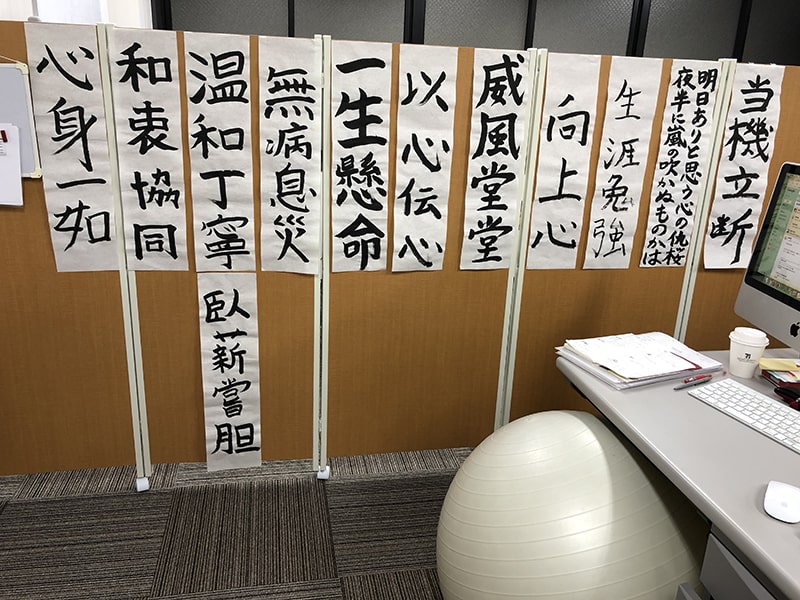 当機立断
明日ありと思う心の仇桜
夜半に嵐の吹かぬものかは
生涯勉強
向上心
威風堂堂
以心伝心
一生懸命
無病息災
温和丁寧
臥薪嘗胆
和衷協同
心身一如